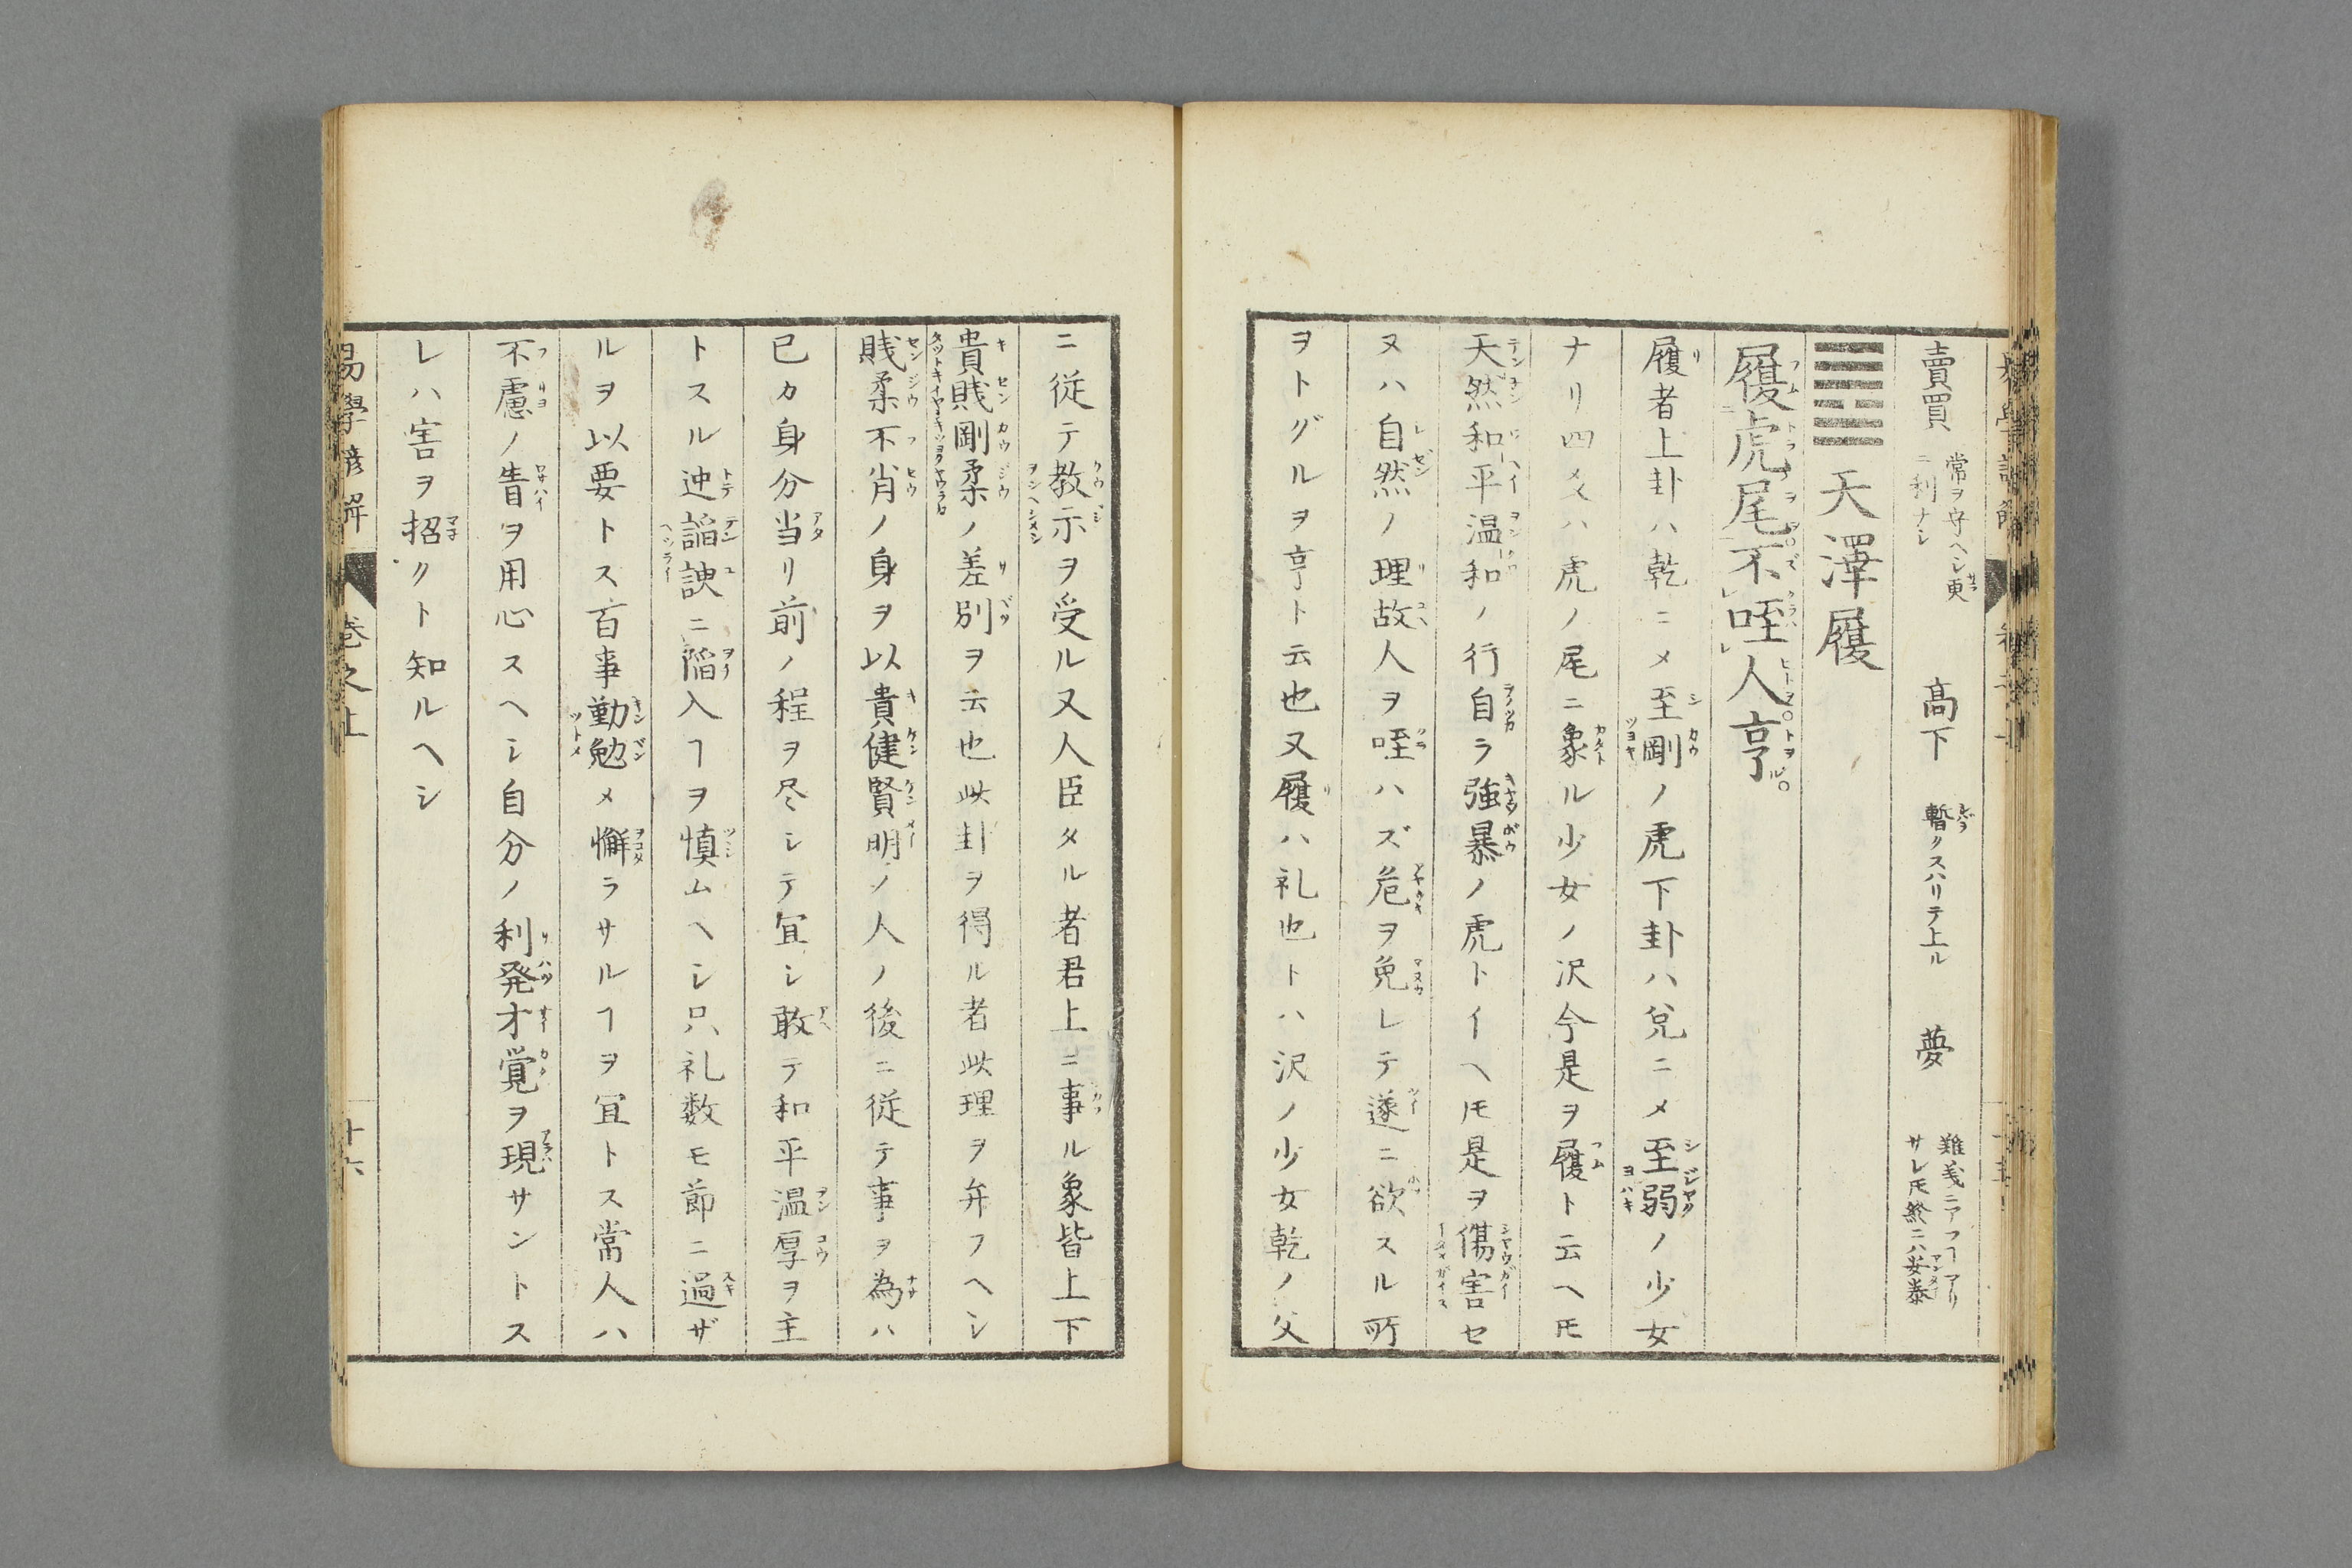 賣買 常ヲ守ヘシ更ニ利ナシ 高下 暫クスハリテ上ル 夢 難義ニアフヿアリサレ𪜈終ニハ安泰
天澤履
履虎尾不咥人亨
履者上卦ハ乾ニメ至剛ノ虎下卦ハ兌ニメ至弱ノ少女
ナリ四爻ハ虎ノ尾ニ象ル少女ノ沢今是ヲ履ト云ヘ𪜈
天然和平温和ノ行自ラ強暴ノ虎トイヘ𪜈是ヲ傷害セ
ヌハ自然ノ理故人ヲ咥ハズ危ヲ免レテ遂ニ欲スル所
ヲトグルヲ亨ト云也又履ハ礼也トハ沢ノ少女乾ノ父
ニ従テ教示ヲ受ル又人臣タル者君上ニ事ル象皆上下
貴賎剛柔ノ差別ヲ云也此卦ヲ得ル者此理ヲ弁フヘシ
賎柔不肖ノ身ヲ以貴健賢明ノ人ノ後ニ従テ事ヲ為ハ
已カ身分当リ前ノ程ヲ尽シテ冝シ敢テ和平温厚ヲ主
トスル迚諂諛ニ陥入ヿヲ慎ムヘシ只礼数モ節ニ過ザ
ルヲ以要トス百事勤勉メ懈ラサルヿヲ冝トス常人ハ
不慮ノ眚ヲ用心スヘシ自分ノ利発才覚ヲ現サントス
レハ害ヲ招クト知ルヘシ
易學諺解 巻之上 十六